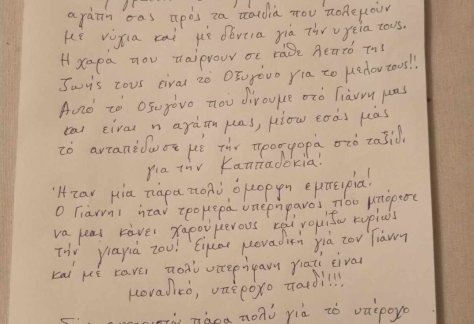 αγάπη σας πρός τα παιδιά που πολεμούν
με νύχια και με δόντια γιά την υγεία τους.
Η χαρά που παίρνουν σε κάθε λεπτό της
ζωής τους είναι το Οξυγόνο για το μέλλον τους!!
Αυτό το Οξυγόνο που δίνουμε στό Γιάννη μας
και είναι η αγάπη μας, μέσω εσάς μάς
τό ανταπέδωσε με τήν προσφορά στό ταξίδι
για τήν Καππαδοκία!
Ήταν μία πάρα πολύ όμορφη εμπειρία!
Ο Γιάννης ήταν τρομερά υπερήφανος που μπόρεσε
να μας κάνει χαρούμενους και νομίζω κυρίως
τήν γιαγιά του! Είμαι μοναδική γιά τον Γιάννη
και με κάνει πολύ υπερήφανη γιατί είναι
μοναδικό, υπέροχο παιδί!!!
πάρα πολύ γιά τό υπέροχο